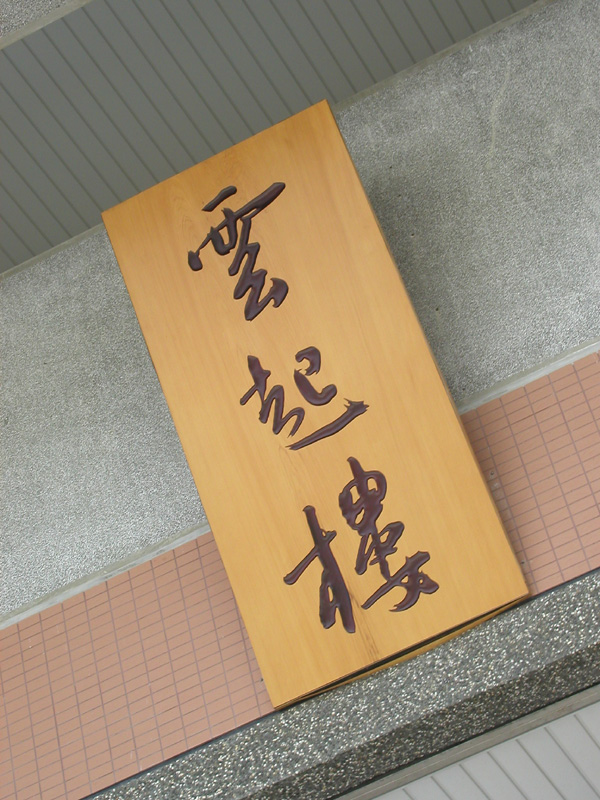 雲起樓